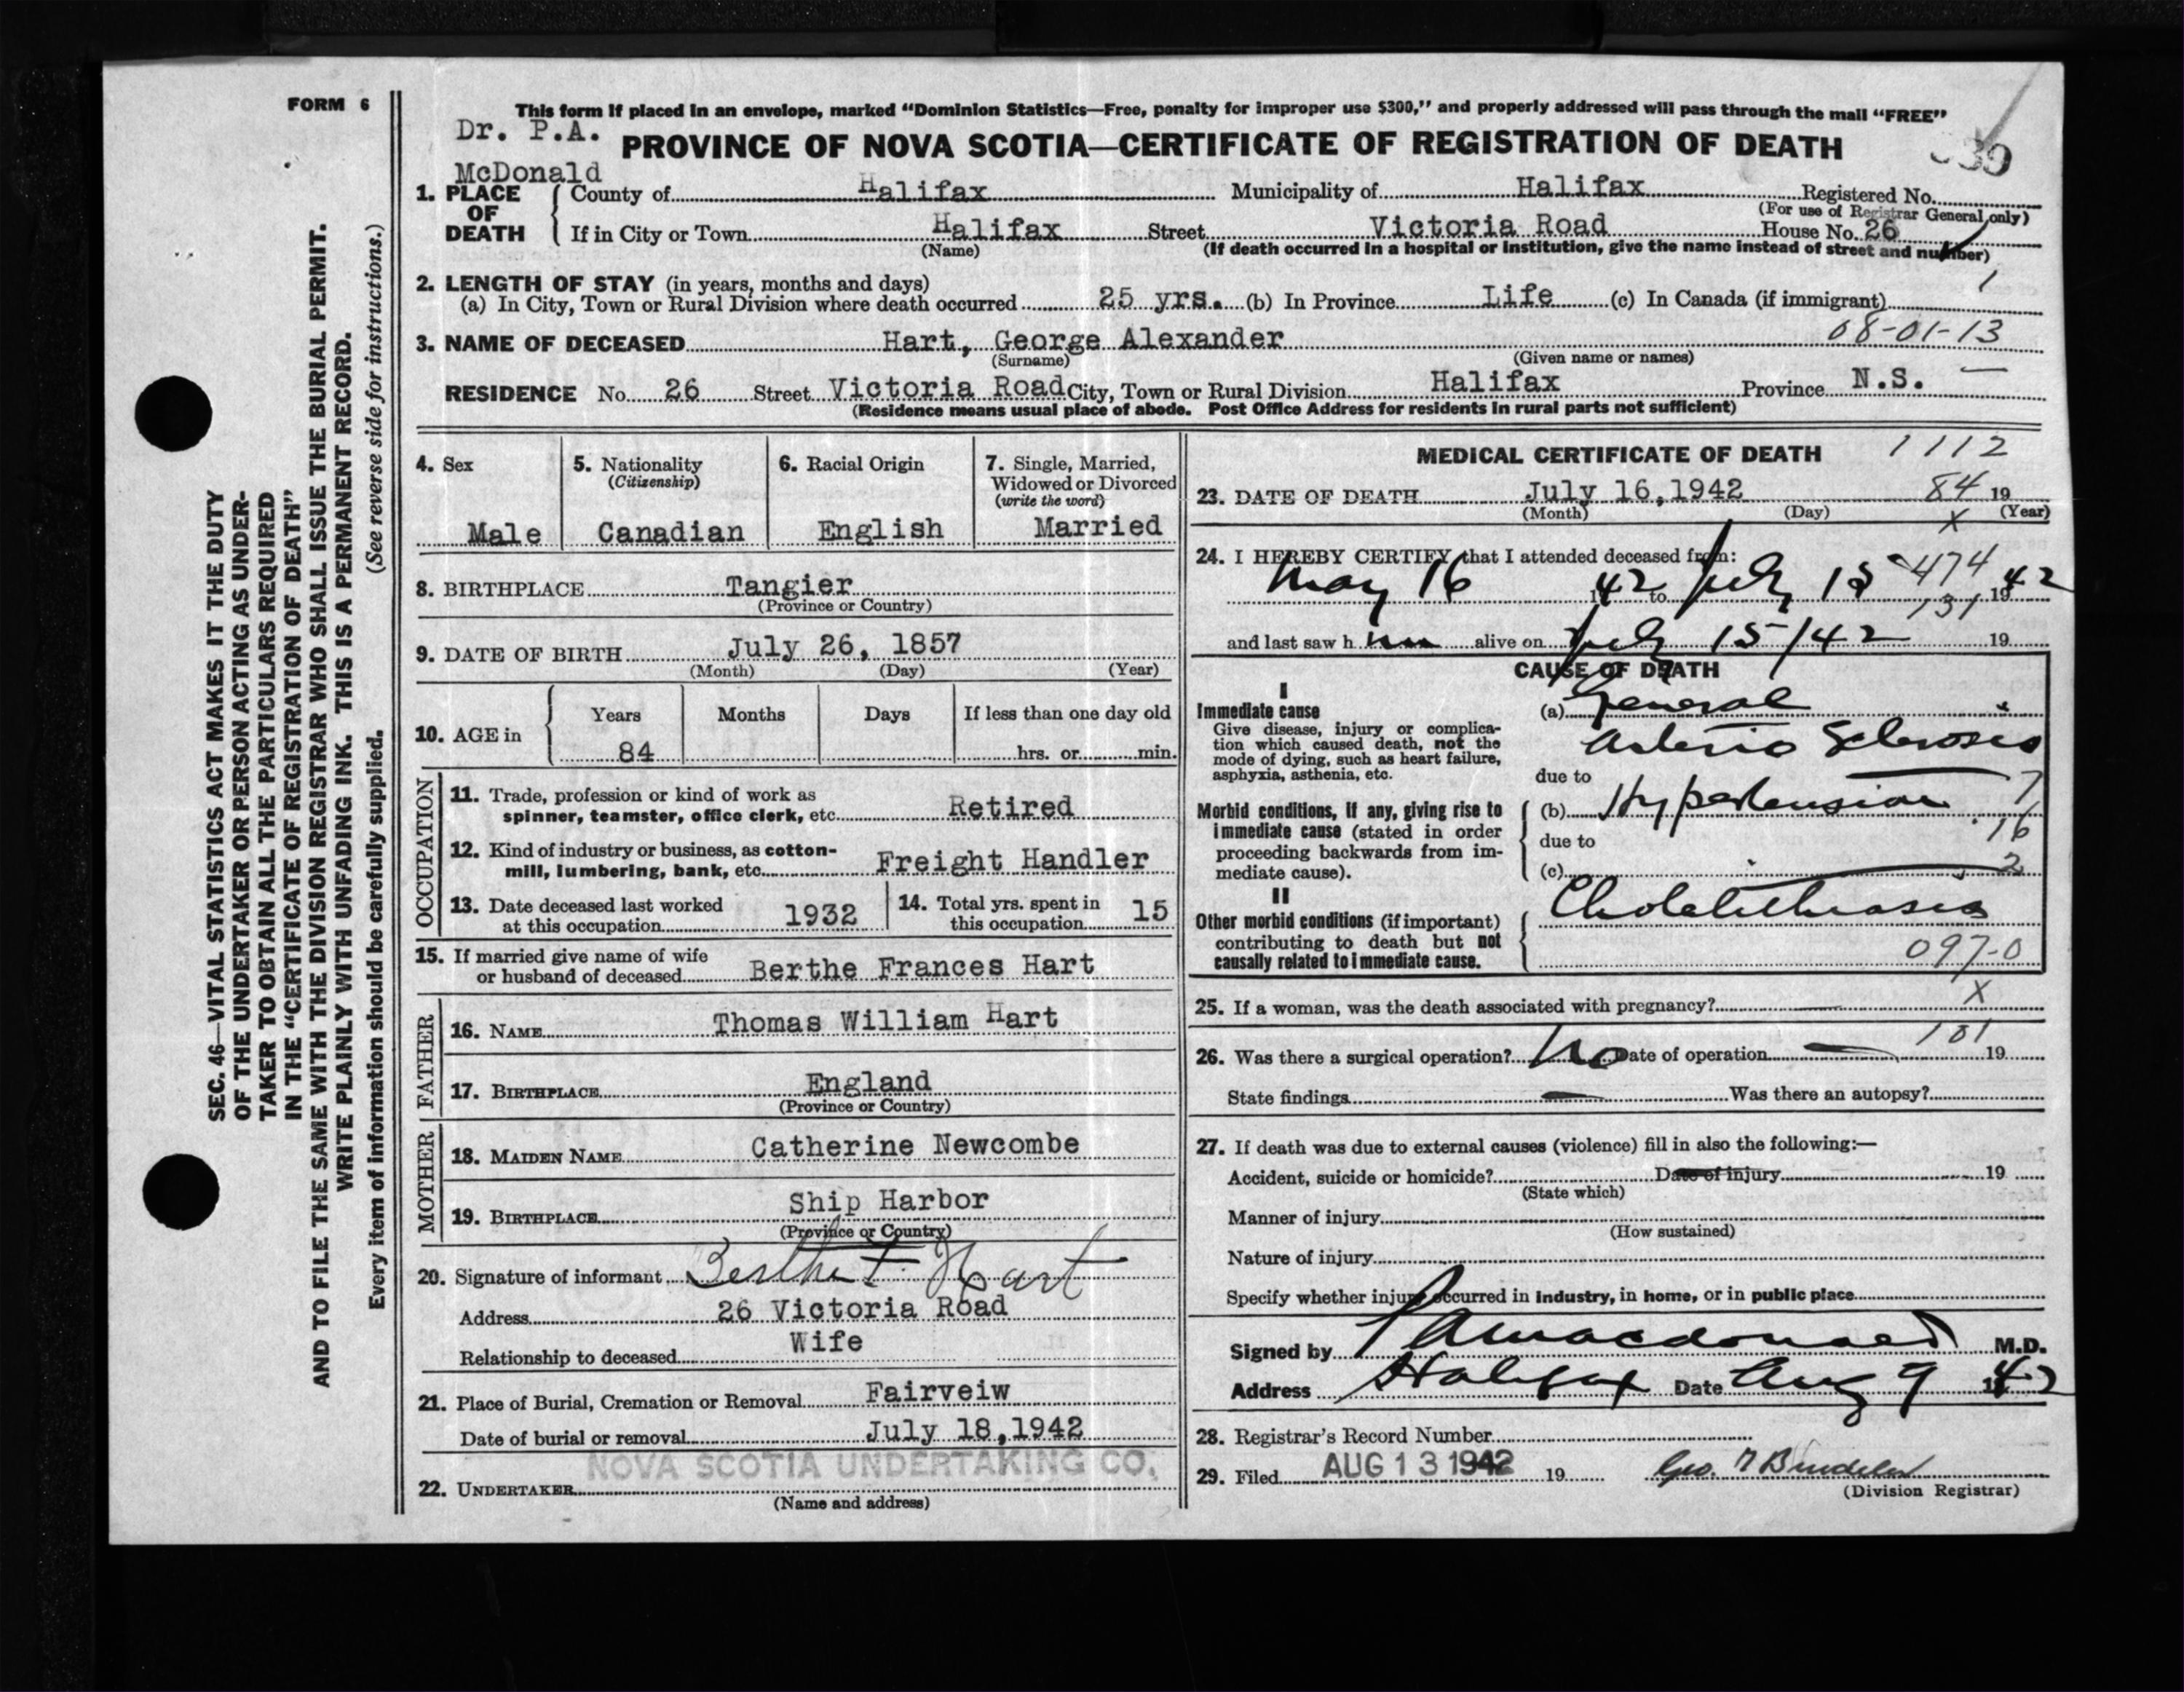 FORM 6
This form if placed in an envelope, marked "Dominion Statistics—Free, penalty for improper use $300," and properly addressed will pass through the mail "FREE"
Dr. P.A.
McDonald
PROVINCE OF NOVA SCOTIA—CERTIFICATE OF REGISTRATION OF DEATH
39
1. PLACE OF DEATH
County of Halifax Municipality of Halifax Registered No.
(For use of Registrar General only)
If in City or Town Halifax Street Victoria Road House No. 26
(Name) (If death occurred in a hospital or institution, give the name instead of street and number)
1
2. LENGTH OF STAY (in years, months and days)
(a) In City, Town or Rural Division where death occurred 25 yrs. (b) In Province Life (c) In Canada (if immigrant)
08-01-13
3. NAME OF DECEASED Hart, George Alexander
(Surname) (Given name or names)
RESIDENCE No. 26 Street Victoria Road City, Town or Rural Division Halifax Province N.S.
(Residence means usual place of abode. Post Office Address for residents in rural parts not sufficient)
4. Sex
Male
5. Nationality
(Citizenship)
Canadian
6. Racial Origin
English
7. Single, Married,
Widowed or Divorced
(write the word)
Married
8. BIRTHPLACE Tangier
(Province or Country)
9. DATE OF BIRTH July 26, 1857
(Month) (Day) (Year)
10. AGE in
Years Months Days If less than one day old
84 hrs. or min.
OCCUPATION
11. Trade, profession or kind of work as
spinner, teamster, office clerk, etc. Retired
12. Kind of industry or business, as cotton-
mill, lumbering, bank, etc. Freight Handler
13. Date deceased last worked
at this occupation 1932
14. Total yrs. spent in
this occupation 15
15. If married give name of wife
or husband of deceased Berthe Frances Hart
FATHER
16. NAME Thomas William Hart
17. BIRTHPLACE England
(Province or Country)
MOTHER
18. MAIDEN NAME Catherine Newcombe
19. BIRTHPLACE Ship Harbor
(Province or Country)
20. Signature of informant Berthe F. Hart
Address 26 Victoria Road
Relationship to deceased Wife
21. Place of Burial, Cremation or Removal Fairveiw
Date of burial or removal July 18,1942
NOVA SCOTIA UNDERTAKING CO.
22. UNDERTAKER
(Name and address)
MEDICAL CERTIFICATE OF DEATH 1112
23. DATE OF DEATH July 16,1942 84 19
(Month) (Day) (Year)
X
24. I HEREBY CERTIFY that I attended deceased from:
474
May 16 1942 to July 15 1942
131
and last saw him alive on July 15/42 19
CAUSE OF DEATH
I
Immediate cause
Give disease, injury or complica-
tion which caused death, not the
mode of dying, such as heart failure,
asphyxia, asthenia, etc.
(a) General
Arterio Sclerosis
due to
Morbid conditions, if any, giving rise to
immediate cause (stated in order
proceeding backwards from im-
mediate cause).
(b) Hypertension 7
16
due to
(c) 2
II
Other morbid conditions (if important)
contributing to death but not
causally related to immediate cause.
Cholelithiasis
097-0
25. If a woman, was the death associated with pregnancy? X
101
26. Was there a surgical operation? No Date of operation 19
State findings Was there an autopsy?
27. If death was due to external causes (violence) fill in also the following:—
Accident, suicide or homicide? Date of injury 19
(State which)
Manner of injury
(How sustained)
Nature of injury
Specify whether injury occurred in industry, in home, or in public place
Signed by P A Macdonald M.D.
Address Halifax Date Aug 9 1942
28. Registrar's Record Number
29. Filed AUG 13 1942 19 Geo.
(Division Registrar)
SEC. 46—VITAL STATISTICS ACT MAKES IT THE DUTY
OF THE UNDERTAKER OR PERSON ACTING AS UNDER-
TAKER TO OBTAIN ALL THE PARTICULARS REQUIRED
IN THE "CERTIFICATE OF REGISTRATION OF DEATH"
AND TO FILE THE SAME WITH THE DIVISION REGISTRAR WHO SHALL ISSUE THE BURIAL PERMIT.
WRITE PLAINLY WITH UNFADING INK. THIS IS A PERMANENT RECORD.
Every item of information should be carefully supplied. (See reverse side for instructions.)